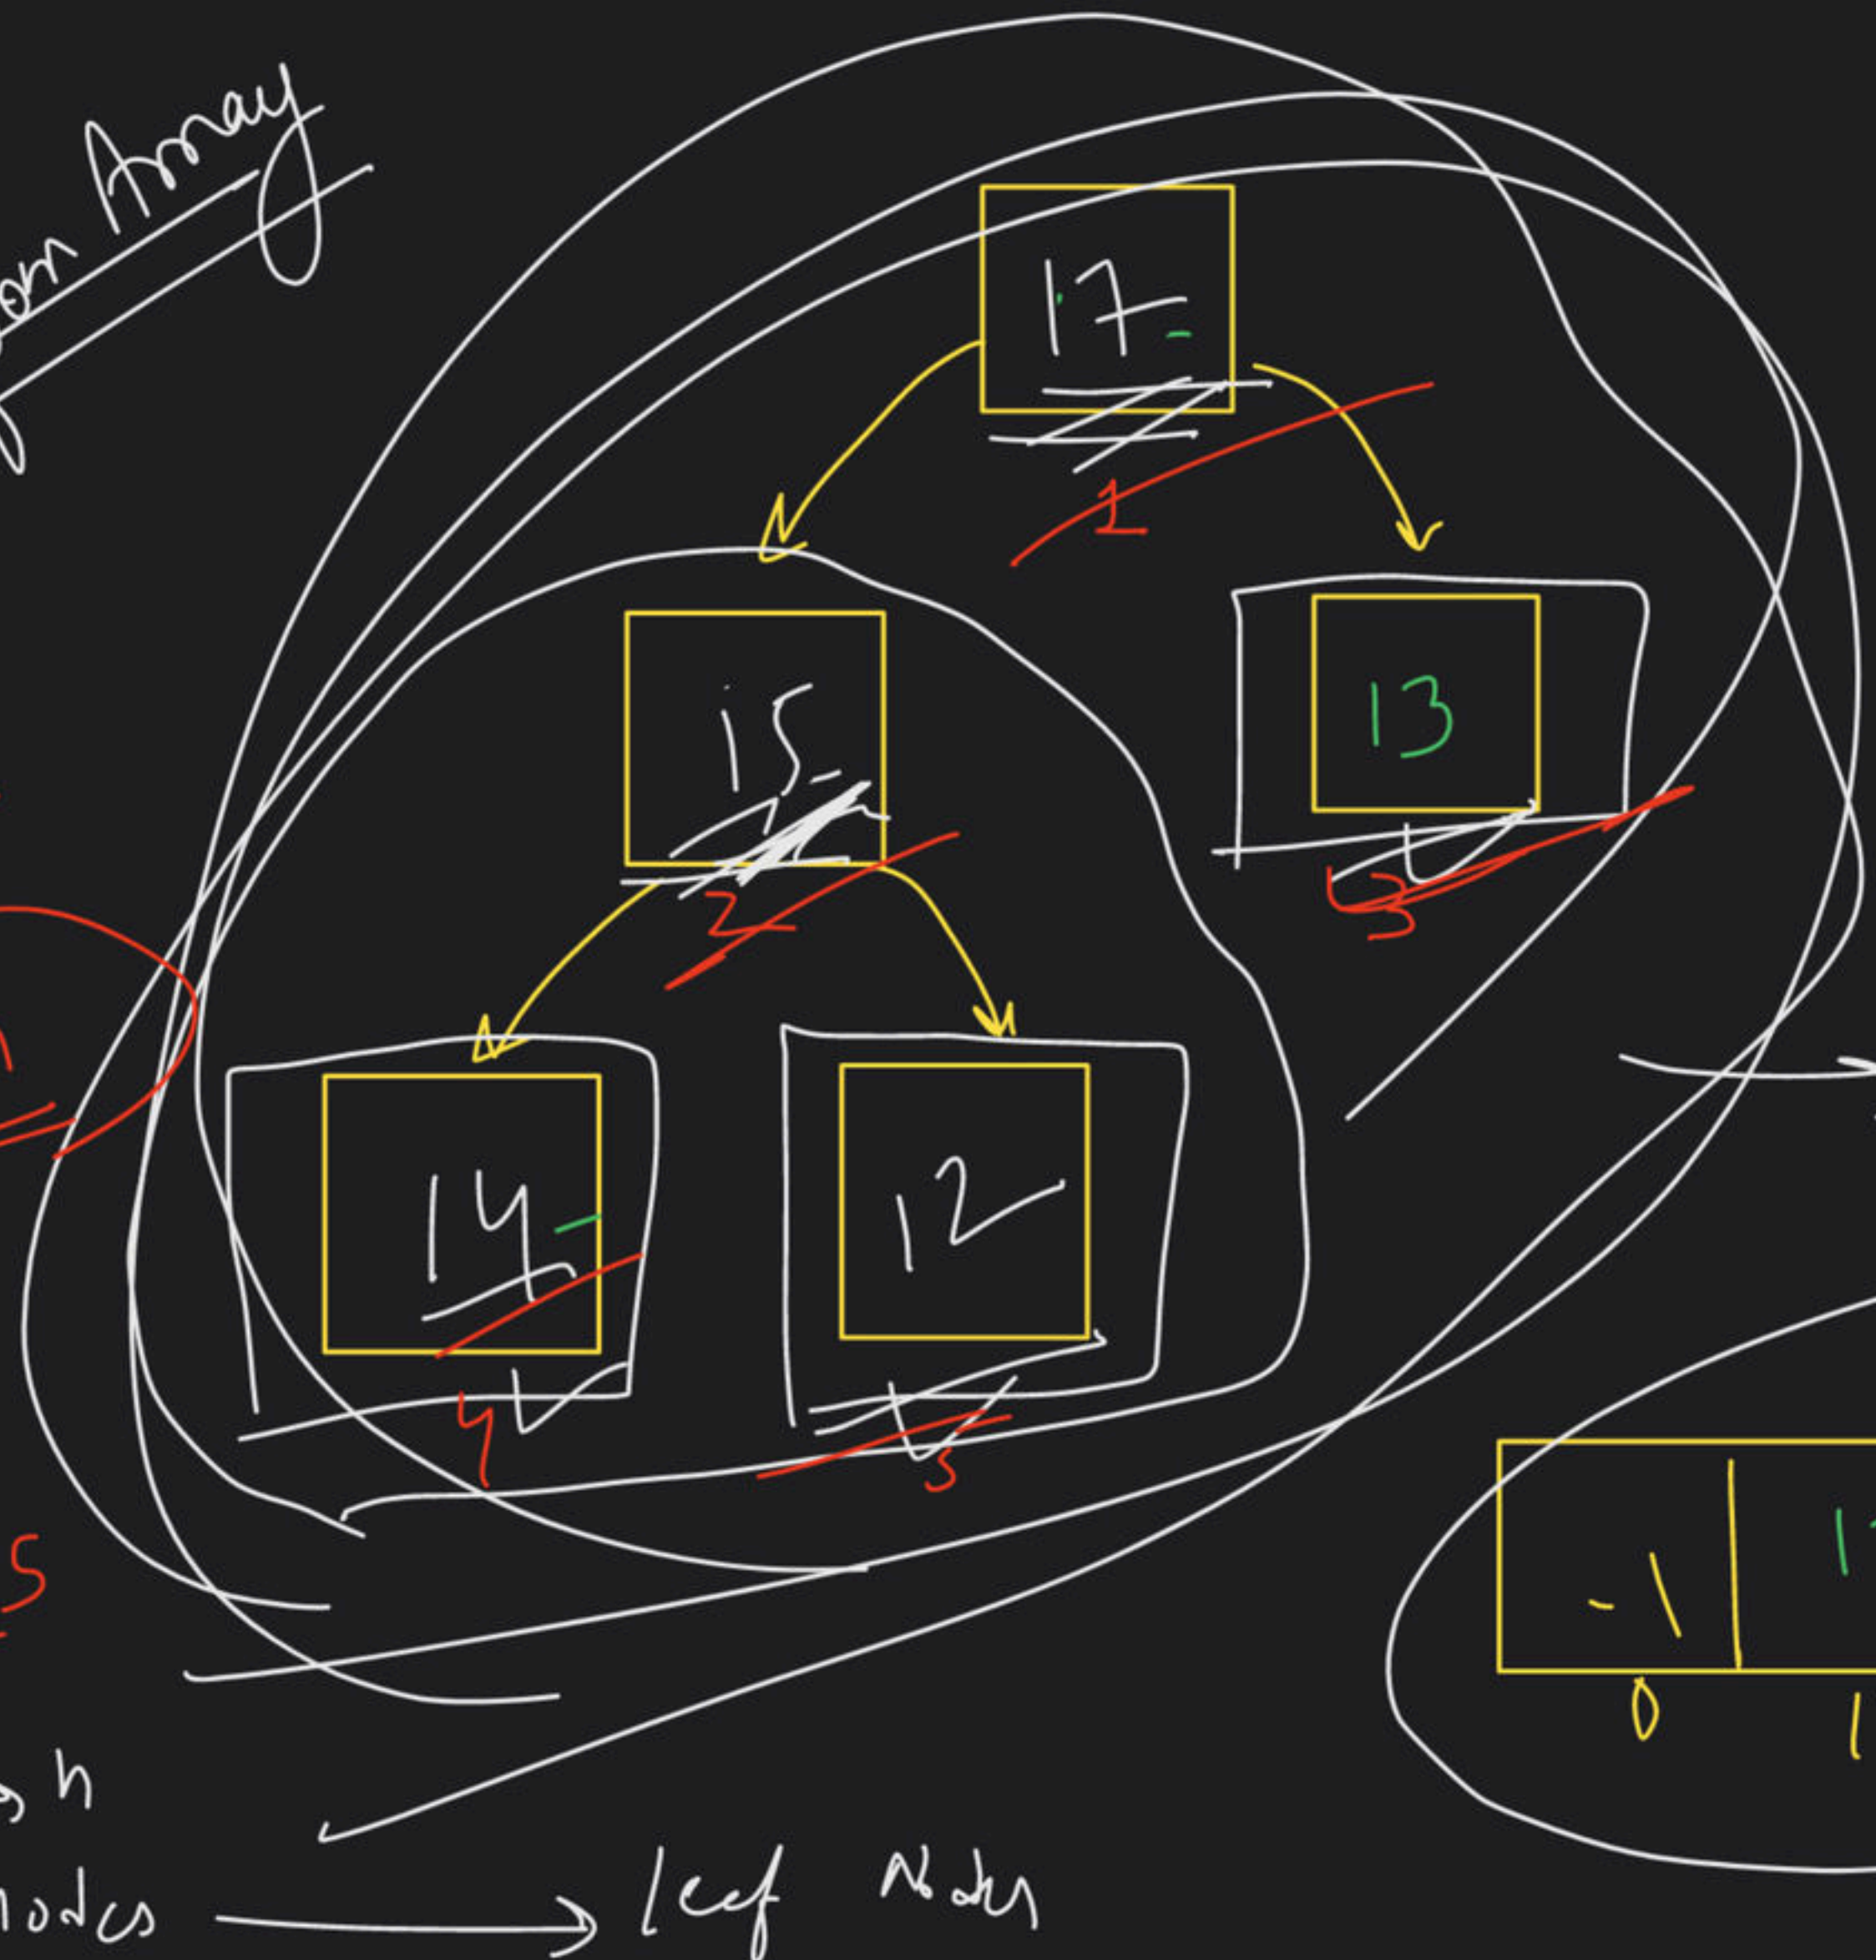 om Array
17
1
15
13
2
3
14
12
4
5
5
-1
0 1
h
nodes → leaf Nodes